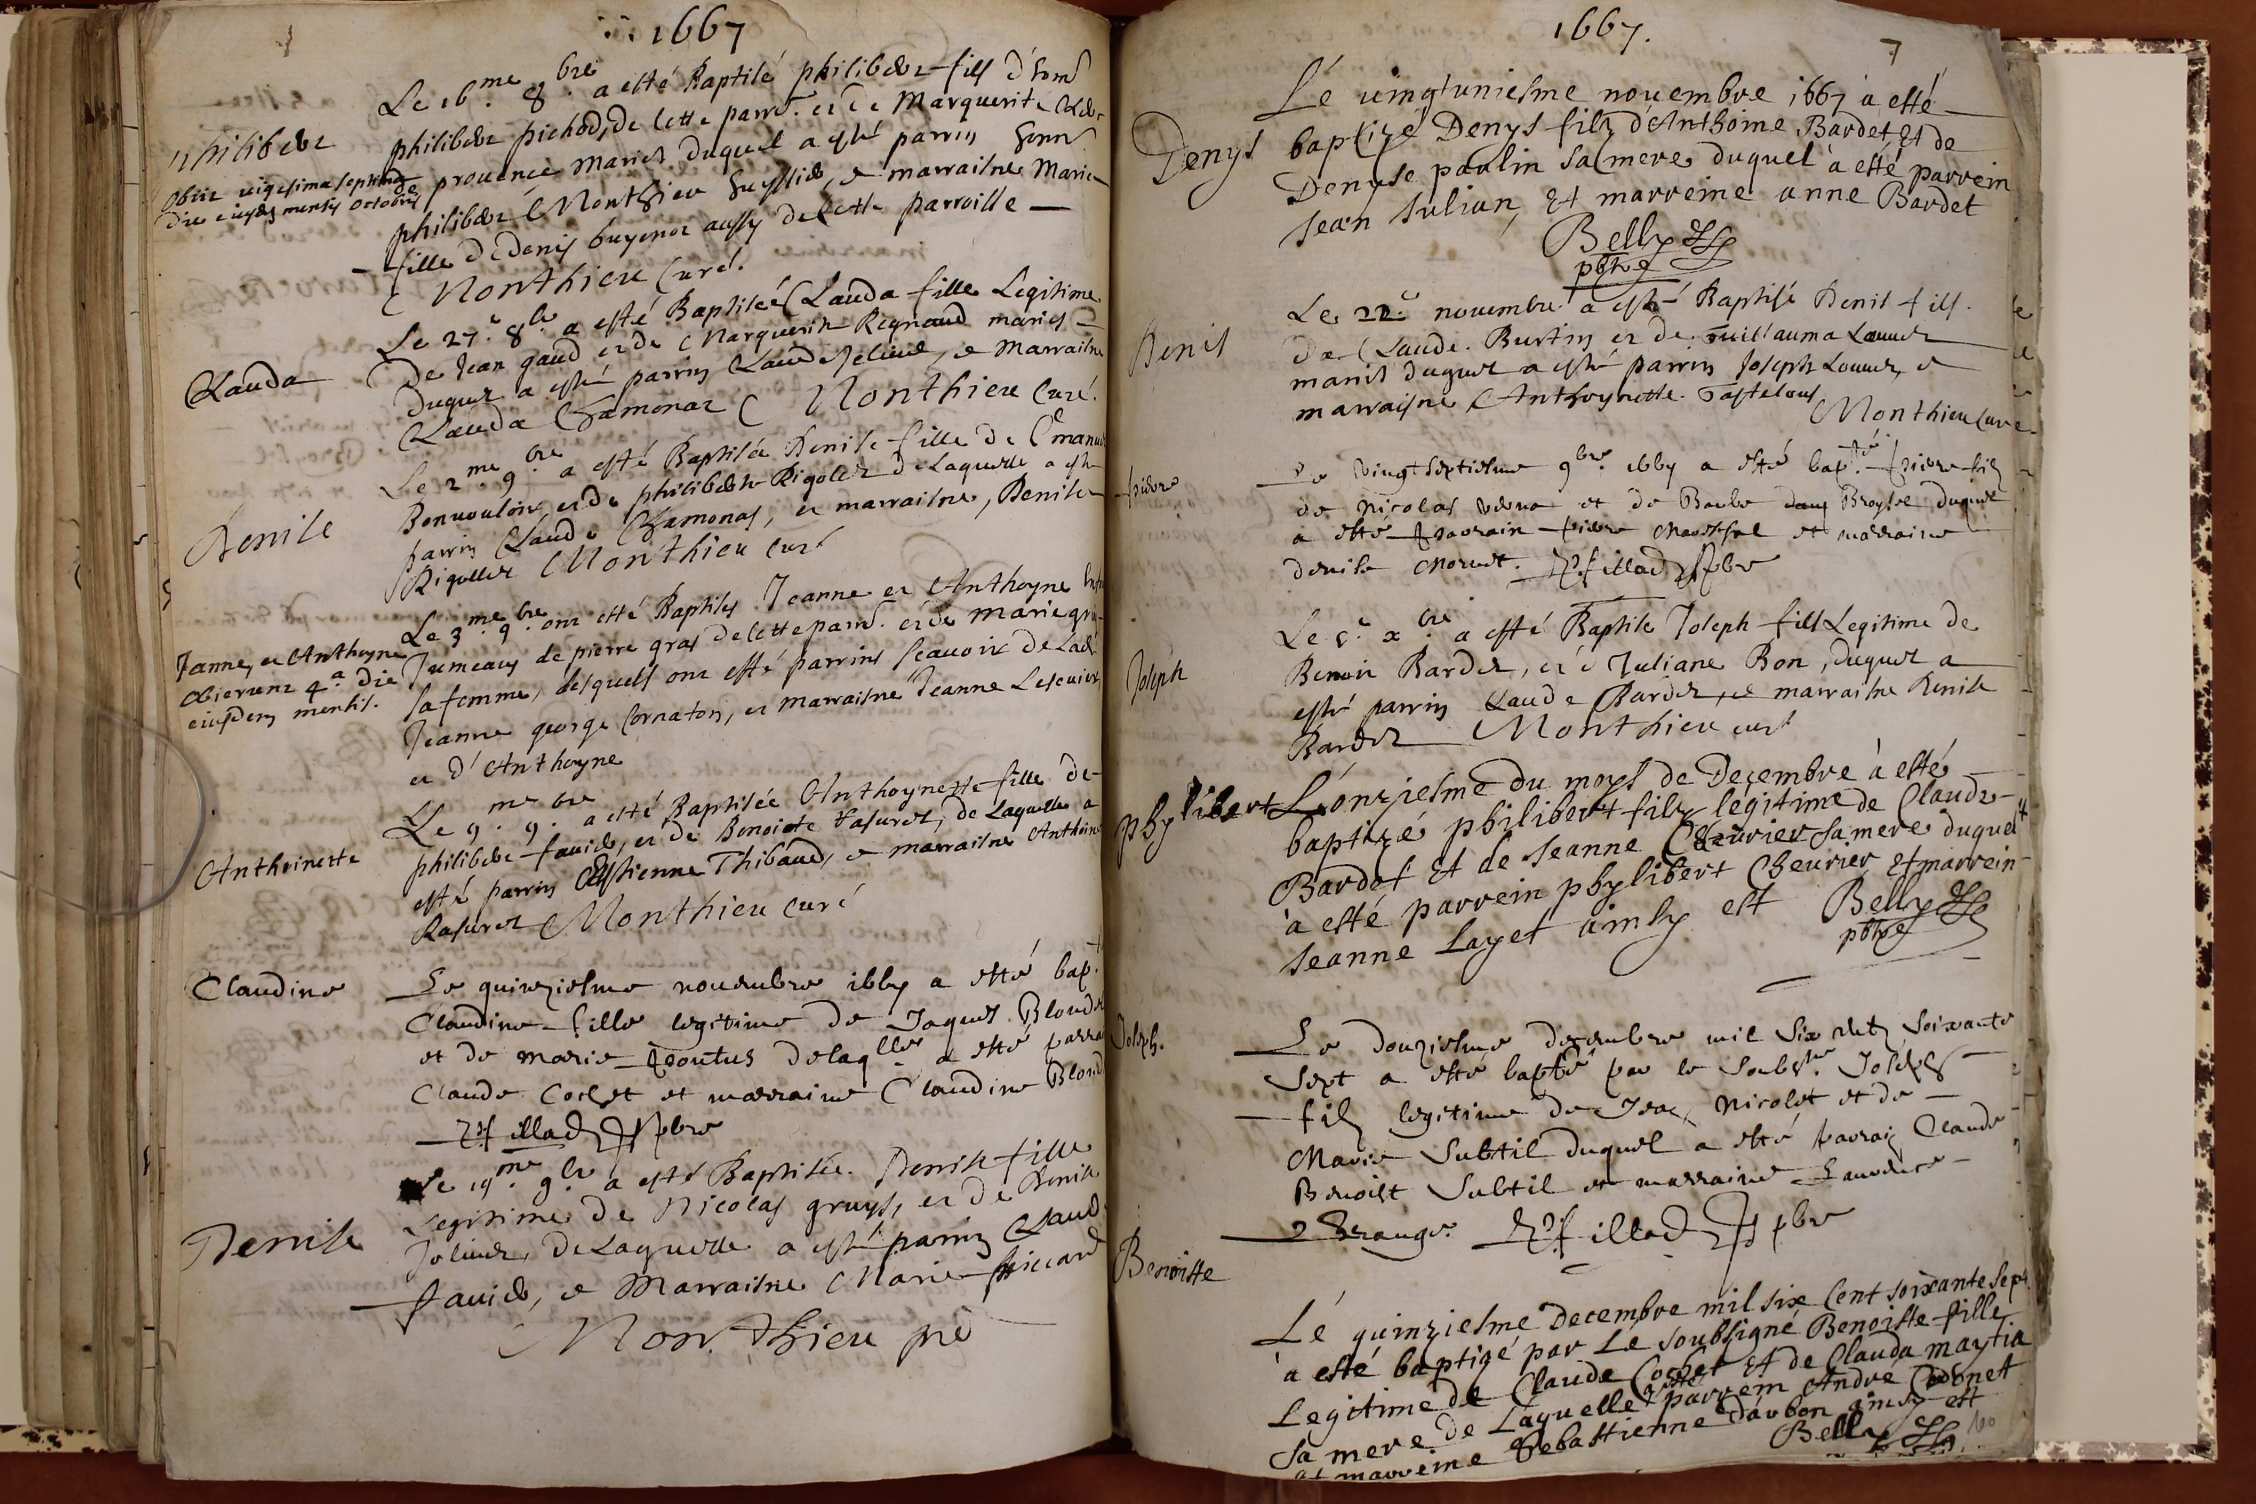 1667
Philibert
Obiit vigesima septima
die eiusdem mensis octobris
Le 16.me 8.bre a esté Baptisé philibert fils d'hon.
philibert pichod, de cette parr. et de Marguerite
de provence mariés duquel a esté parrin honn.
philibert Monthieu huyssier, et marraisne Marie
fille de denis buyenot aussy de cette parroisse
Monthieu Curé.
Clauda
Le 27.e 8.bre a esté Baptisée Clauda fille Legitime
De Jean gaud et de Marguerite Regnaud mariés
duquel a esté parrin Claude Jelieut, et Marraisne
Clauda Chamonat Monthieu Curé.
Denise
Le 2.me 9.bre a esté Baptisée Denise fille de Emanuel
Bonvouloir, et de philiberte Rigollet de Laquelle a esté
parrin Claude Chamonat, et marraisne, Denise
Rigollet Monthieu curé
Janne, et Anthoyne
Obierunt 4.a die
eiusdem mensis.
Le 3.me 9.bre ont esté Baptisés Jeanne et Anthoyne
Jumeaux de pierre gras de cette parr. et de marie
sa femme, desquels ont esté parrins scavoir de Lad.
Jeanne george Cornaton, et marraisne Jeanne Lescuier,
et d'Anthoyne
Anthoinette
Le 9.me 9.bre a esté Baptisée Anthoynette fille de
philibert favier, et de Benoiste Rasuret, de Laquelle a
esté parrin Estienne Thibaud, et marraisne Anthoine
Rasuret Monthieu curé
Claudine
Le quinziesme novembre 1667 a esté bap.
Claudine fille legitime de Jaques Blondel
et de marie proutus delaq.lle a esté parrain
Claude Cochet et marraine Claudine Blond
fillad pbre
Denise
Le 19.me 9.bre a esté Baptisée Denise fille
Legitime de Nicolas gruys, et de Denise
Jolivet, de Laquelle a esté parrin Claude
favier, et Marraisne Marie piccard
Monthieu pre
1667.
7
Denys
Lé vingtuniesme novembre 1667 à esté
baptizé Denys filz d'Anthoine Bardet Et de
Denyse paulin sa mere duquel à esté parrein
Jean Julian, Et marreine anne Bardet
Belly
pbtre
Denis
Le 22.e novembre a esté Baptisé Denis fils
De Claude Burtin et de guillauma Louvet
mariés duquel a esté parrin Joseph Louvet, et
marraisne Anthoynette Tastelous
Monthieu Curé
pierre
Le vingt septiesme 9bre 1667 a esté bap.té pierre filz
de Nicolas verna et de Barbe Broysse duquel
a esté parrain pierre Mareschal et marraine
denise Mornet. fillad pbre
Joseph
Le 5.e x.bre a esté Baptisé Joseph fils Legitime de
Benoit Bardet, et Juliane Bon, duquel a
esté parrin Claude Bardet, et marraisne Denise
Bardet Monthieu curé
phylibert
L'onziesme du moys de Decembre à esté
baptizé philibert filz legitime de Claude
Bardet Et de Jeanne Cheurier sa mere duquel
à esté parrein phylibert Cheurier Et marrein
Jeanne Layet ainsy est Belly
pbtre
Joseph.
Le douziesme decembre mil six centz soixante
sept a esté bapté par le soubs.né Joseph
filz legitime de Jean Nicolet et de
Marie Subtil duquel a esté parrain Claude
Benoist Subtil et marraine Laurence
Grange. fillad pbre
Benoiste
Lé quinziesme Decembre mil six Cent soixante sept
à esté baptizé par Le soubsigné Benoiste fille
Legitime de Claude Cochet Et de Clauda maytia
sa mere de Laquelle a esté parrein Andre Cadonet
Et marreine Sebastienne darbon ainsy est
Belly